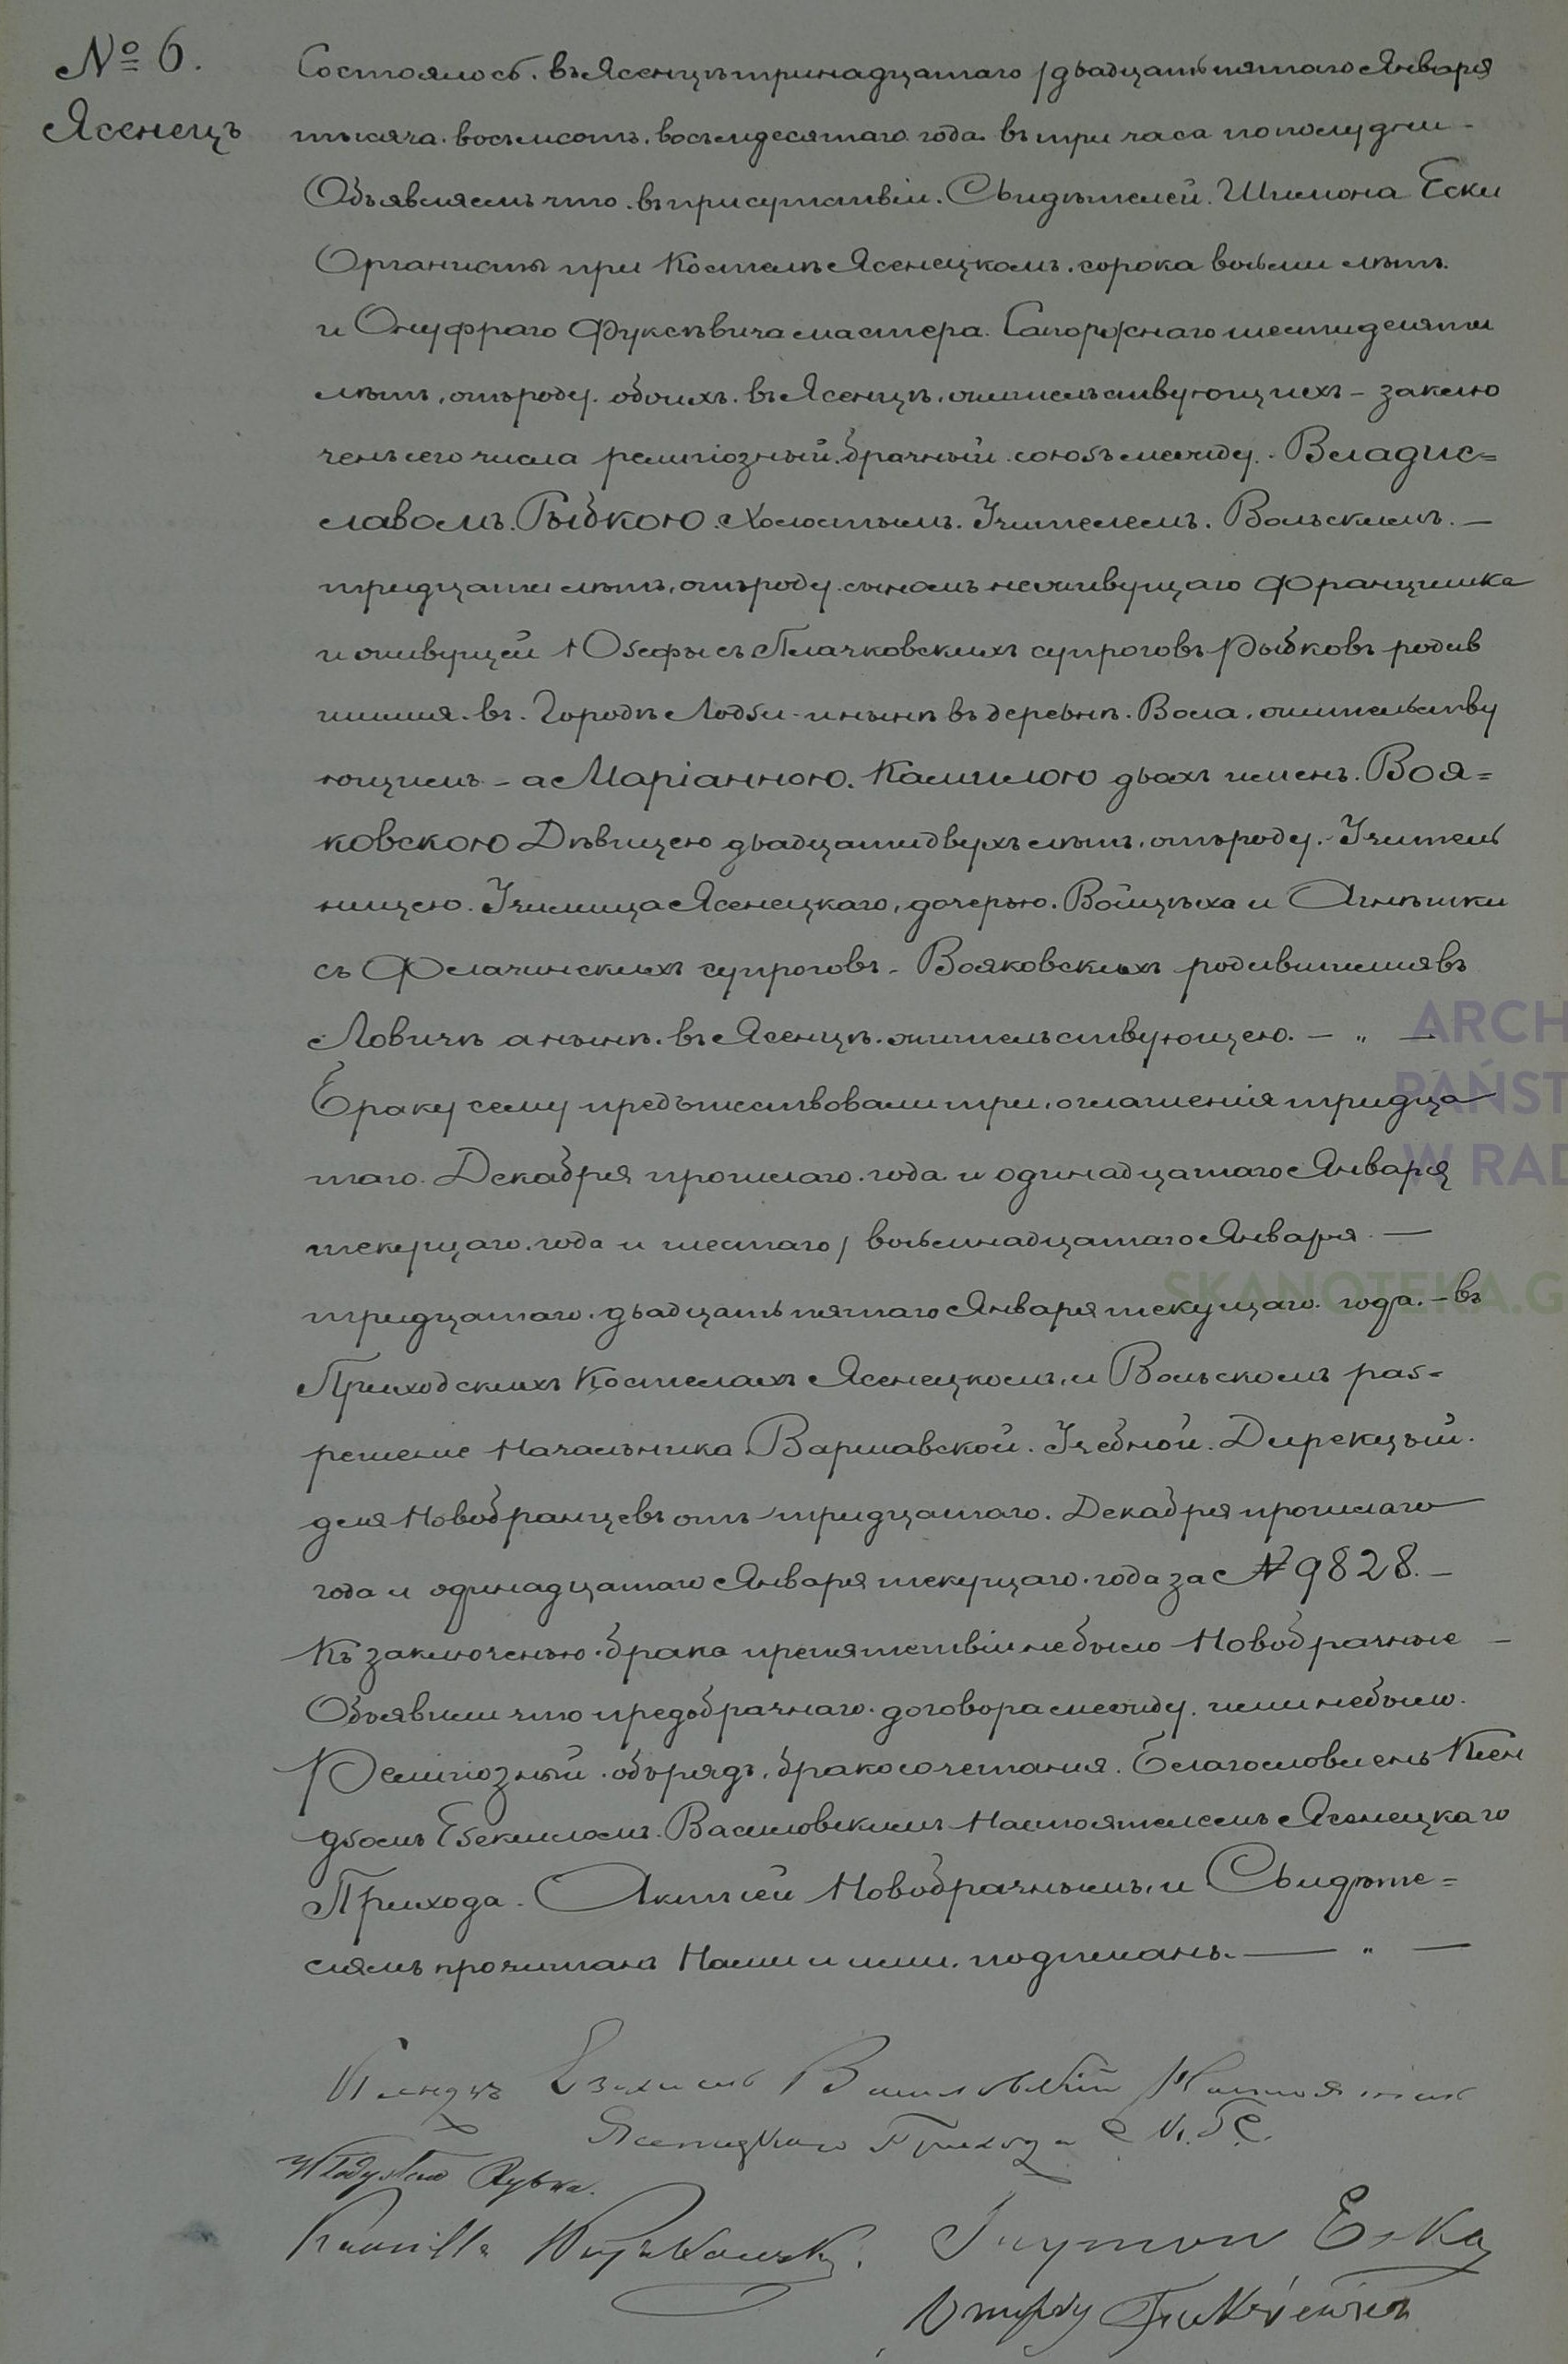 № 6.
Ясенецъ
Состоялось въ Ясенцѣ тринадцатаго / двадцать пятаго Января
тысяча восемсотъ восемдесятаго года въ три часа пополудни -
Объявляемъ что въ присутствіи Свидѣтелей Шимона Ески
Органисты при Костелѣ Ясенецкомъ сорока восьми лѣтъ
и Онуфраго Фуксѣвича мастера Сапожнаго шестидесяти
лѣтъ отъ роду обоихъ въ Ясенцѣ жительствующихъ - заклю
ченъ сего числа религіозный брачный союзъ между - Владис=
лавомъ Рыбкою Холостымъ Учителемъ Вольскимъ —
тридцати лѣтъ отъ роду сыномъ неживущаго Францишка
и живущей Юзефы съ Плачковскихъ супроговъ Рыбковъ родив
шимся въ Городѣ Лодзи и нынѣ въ деревнѣ Воля жительству
ющимъ - а Маріанною Камилою двохъ именъ Воя=
ковскою Дѣвицею двадцати двухъ лѣтъ отъ роду Учитель
ницею Училища Ясенецкаго, дочерью Войцѣха и Агнѣшки
съ Флачинскихъ супроговъ - Вояковскихъ родившимся въ
Ловичѣ а нынѣ въ Ясенцѣ жительствующею. — „ —
Браку сему предъшествовали три оглашенія тридца
таго Декабря прошлаго года и одинадцатаго Января
текущаго года и шестаго / восьмнадцатаго Января —
тридцатаго двадцать пятаго Января текущаго года - въ
Приходскихъ Костелахъ Ясенецкомъ и Вольскомъ раз=
решение Начальника Варшавской Учебной Дирекцый
для Новобранцевъ отъ тридцатаго Декабря прошлаго
года и одинадцатаго Января текущаго года за № 9828. —
Къ заключенью брака препятствіи небыло Новобрачные —
Объявили что предъбрачнаго договора между ими небыло.
Религіозный обърядъ бракосочетания Благословленъ Ксен
дзомъ Езекиломъ Василовскимъ Настоятелемъ Ясенецкаго
Прихода. Актъ сей Новобрачнымъ и Свидѣте=
лямъ прочитанъ Нами и ими подписанъ. — „ —
Ксендзъ Езекіилъ Василовскій Настоятель
Ясенецкаго Прихода
Władysław Rybka.
Kamilla Wojakowska.
Szymon Eska
Onufry Fuksiewicz
ARCH
PAŃST
W RAD
SKANOTEKA.G